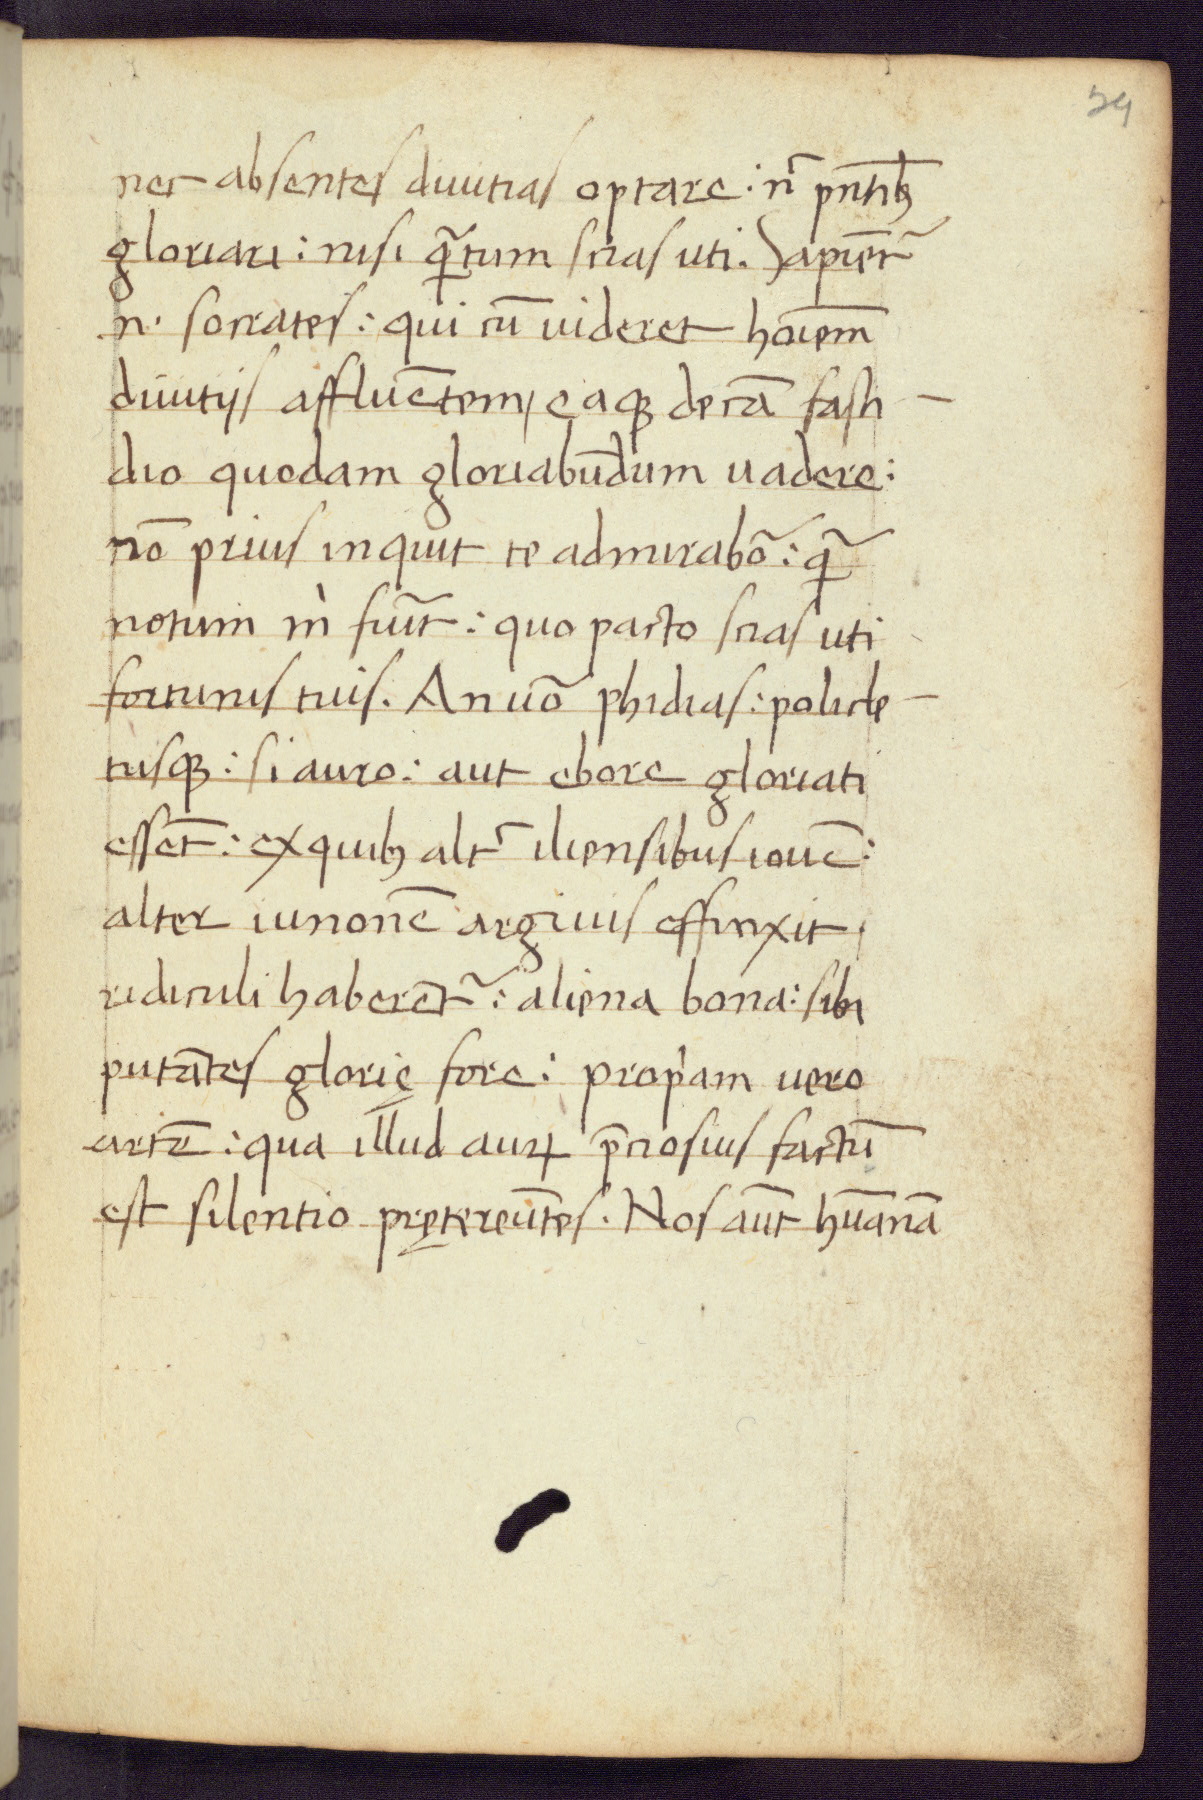 29
nec absentes diuitias optare: nͥ pn̄tibꝫ
gloriari: nisi qᷓtum scias uti. Sapiēt᷑
n· socrates: qui cū uideret hoīem̄
diuitijs affluētem, eaqꝫ de cā fasti-
dio quodam gloriabūdum uadere:
nō prius inquit te admirabo᷑: qᷓ
notum m̀ fuit᷑: quo pacto scias uti
fortunis tuis. An uō phidias: policle-
tusqꝫ: si auro: aut ebore gloriati
essēt: ex quibꝫ alt᷑ iliensibus iouē:
alter iunonē argiuis effinxit,
ridiculi haberēt᷑: aliena bona: sibi
putātes glorię fore: prop̀am uero
artē: qua illud auꝝ p̄ciosius factū
est silentio prętereūtes. Nos aūt hūanā